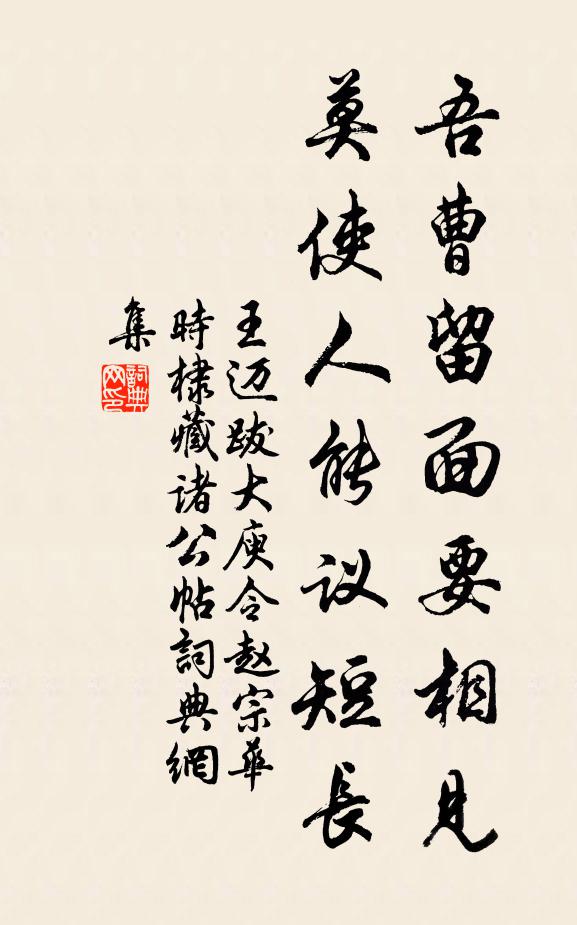 吾曹留面要相見
莫使人能议短長
王迈跋大庾令赵宗華
時棣藏诸公帖詞典網
集
詞典
网印